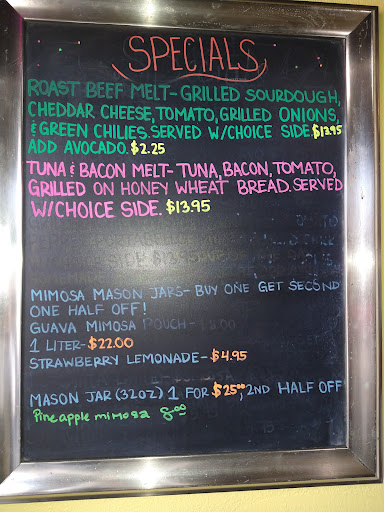 SPECIALS
ROAST BEEF MELT- GRILLED SOURDOUGH,
CHEDDAR CHEESE, TOMATO, GRILLED ONIONS,
& GREEN CHILIES. SERVED W/CHOICE SIDE. $13.95
ADD AVOCADO. $2.25
TUNA & BACON MELT- TUNA, BACON, TOMATO,
GRILLED ON HONEY WHEAT BREAD. SERVED
W/CHOICE SIDE. $13.95
MIMOSA MASON JARS- BUY ONE GET SECOND
ONE HALF OFF!
GUAVA MIMOSA POUCH - 8.00
1 LITER- $22.00
STRAWBERRY LEMONADE- $4.95
MASON JAR (32OZ) 1 FOR $25.00, 2ND HALF OFF
Pineapple mimosa 8.00